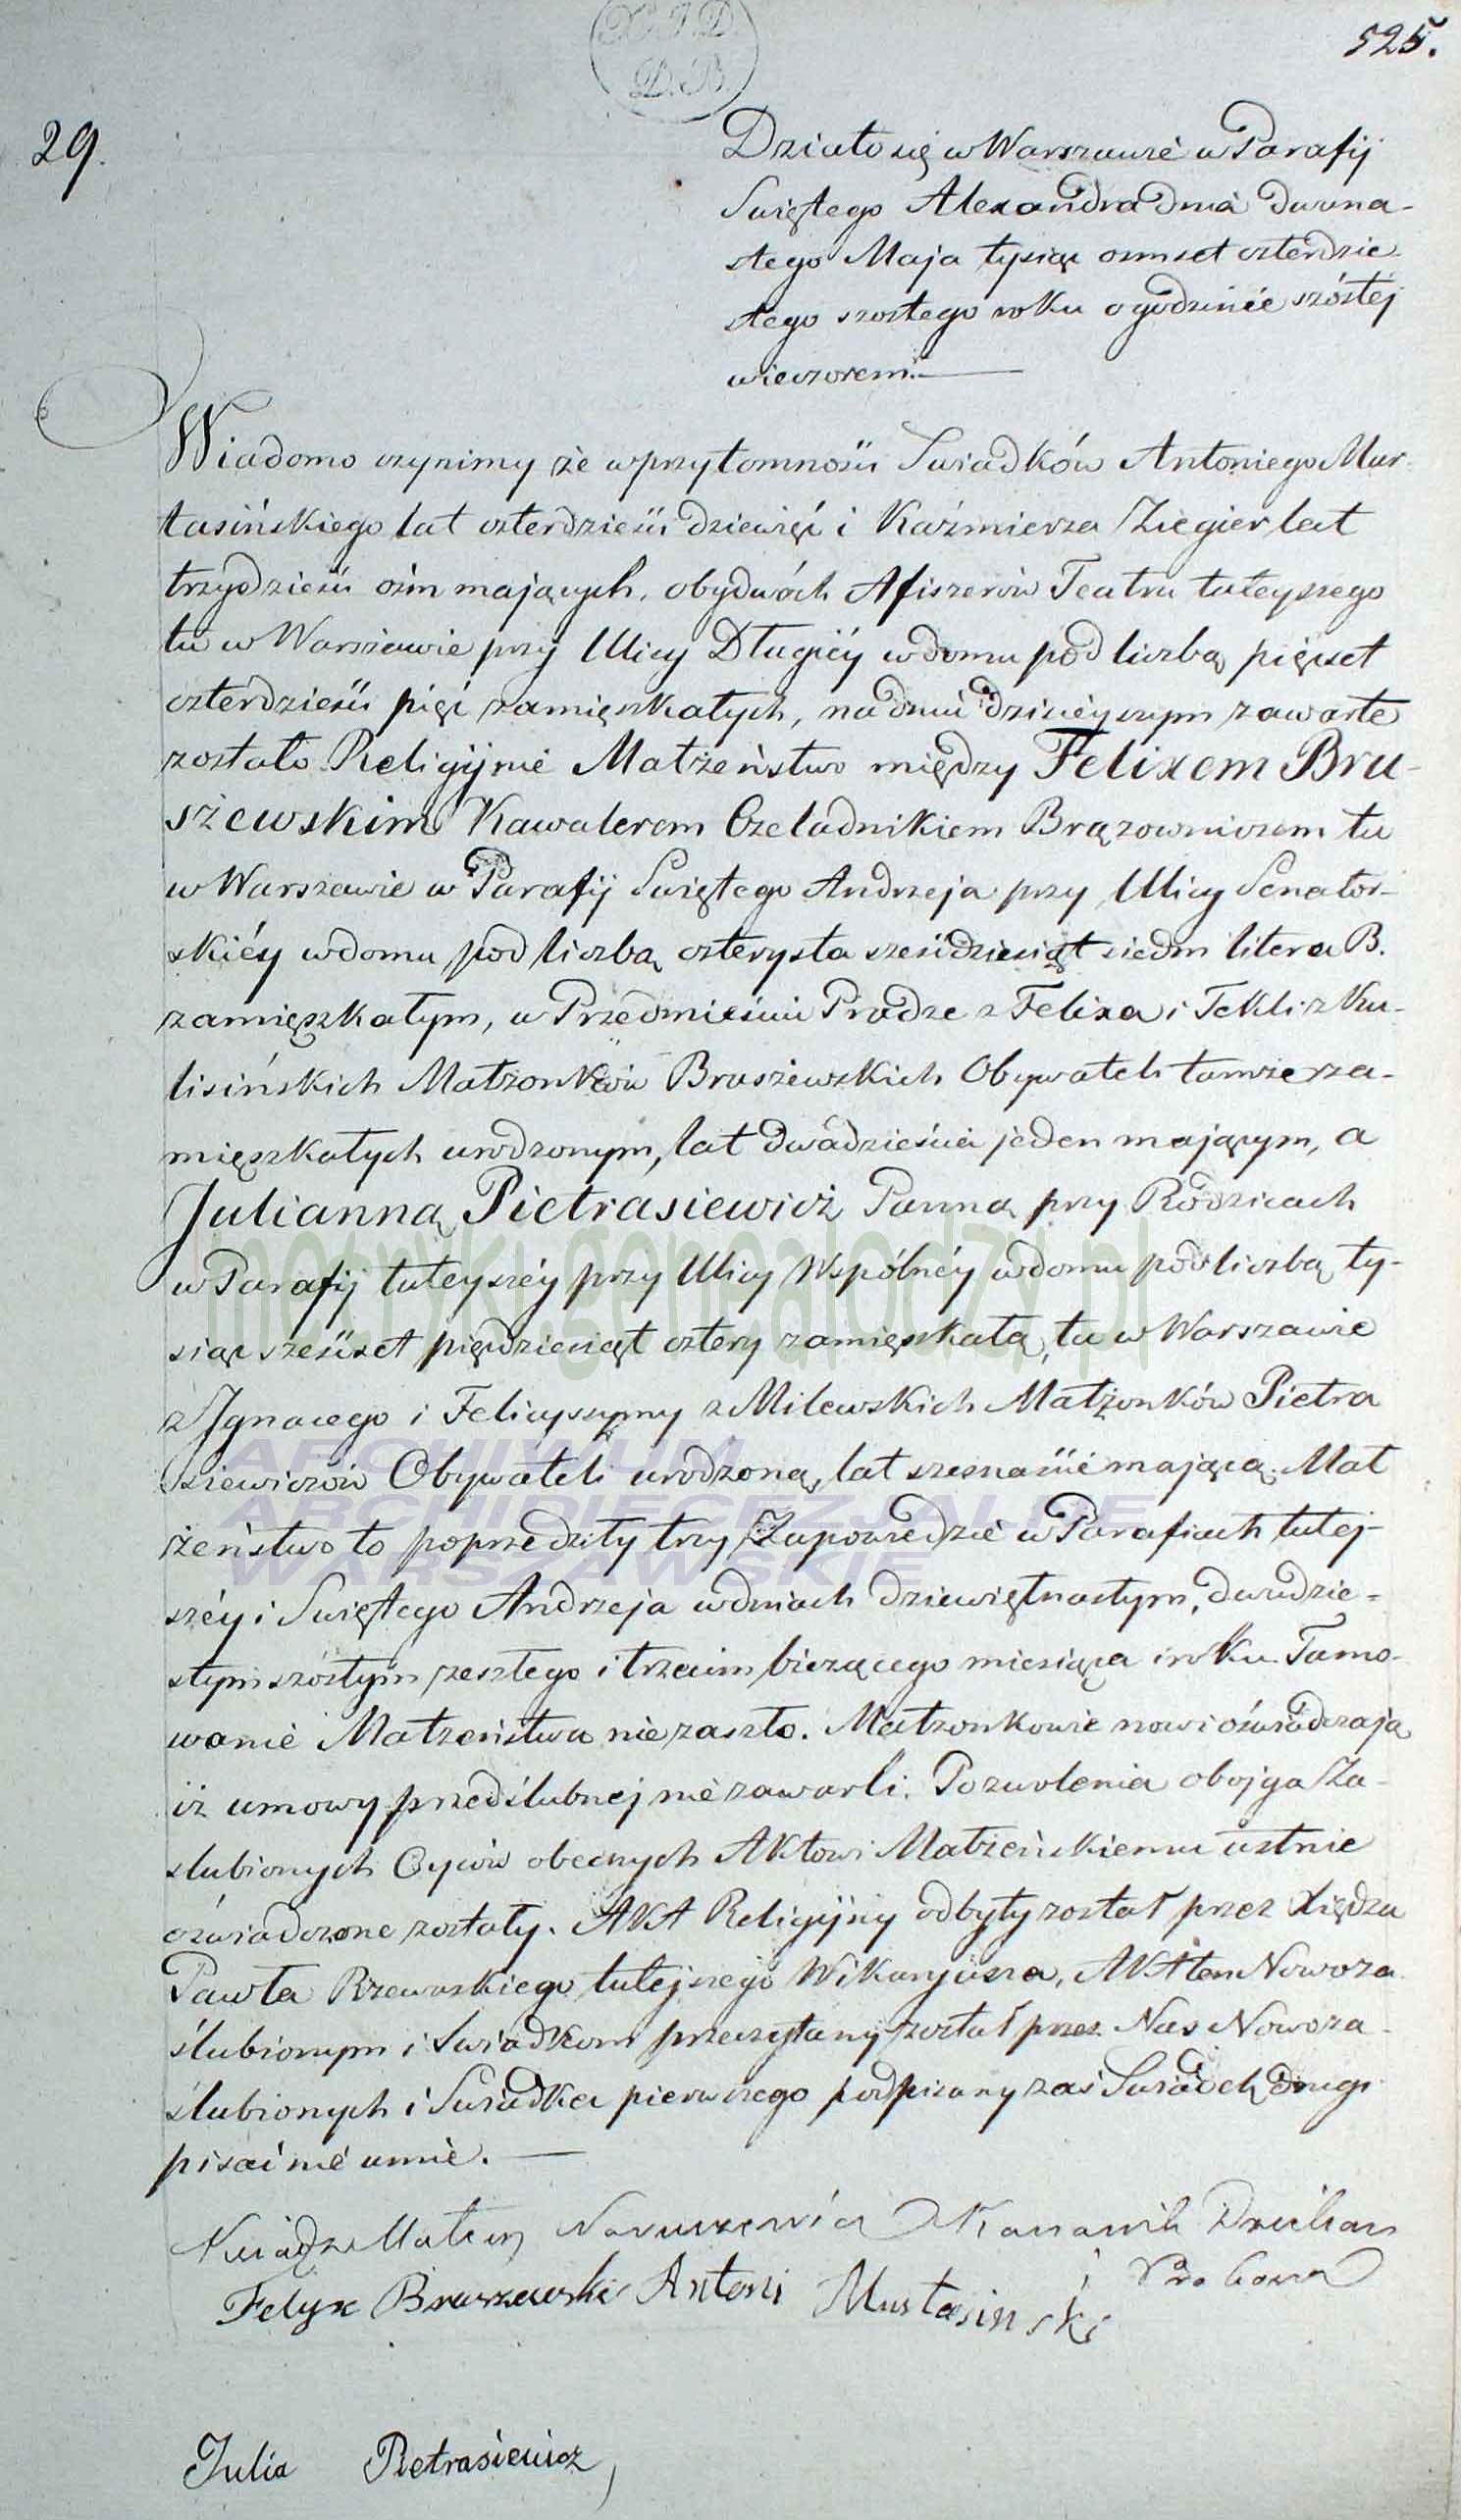 525.
29.
Działo się w Warszawie w Parafij
Swiętego Alexandra dnia dwuna-
stego Maja tysiąc ośmset czterdzie-
stego szóstego roku o godzinie szóstéj
wieczorem.—
Wiadomo czynimy że w przytomności Swiadków Antoniego Mur-
tasińskiego lat czterdzieści dziewięć i Kaźmierza Ziegier lat
trzydzieści ośm mających, obydwóch Afiszerów Teatru tuteyszego
tu w Warszawie przy Ulicy Długiéy w domu pod liczbą pięćset
czterdzieści pięć zamięszkałych, na dniu dzisiéyszym zawarte
zostało Religijnie Małżeństwo między Felixem Bru-
szewskim Kawalerem Czeladnikiem Brązowniczem tu
w Warszawie w Parafij Swiętego Andrzeja przy Ulicy Senator-
skiéy w domu pod liczbą czterysta sześćdziesiąt siedm litera B.
zamięszkałym, w Przedmieściu Pradze z Felixa i Tekli z Ku-
lisińskich Małżonków Bruszewskich Obywateli tamże za-
mięszkałych urodzonym, lat dwadzieścia jeden mającym, a
Julianną Pietrasiewicż Panną przy Rodzicach
w Parafij tuteyszéy przy Ulicy Wspólnéy w domu pod liczbą ty-
siąc sześćset pięćdziesiąt cztery zamięszkałą, tu w Warszawie
z Ignacego i Felicyssymy z Milewskich Małżonków Pietra
siewiczów Obywateli urodzoną, lat szesnaście mającą. Mał
żeństwo to poprzedziły trzy Zapowiedzie w Parafiach tutej-
széy i Swiętego Andrzeja w dniach dziewiętnastym, dwudzie-
stym szóstym zeszłego i trzecim bieżącego miesiąca i roku. Tamo-
wanie Małżeństwa nie zaszło. Małżonkowie nowi oświadczają
iż umowy przedślubnej nie zawarli. Pozwolenia obojga Za-
slubionych Oyców obecnych Aktowi Małżeńskiemu ustnie
oświadczone zostały. Akt Religijny odbyty został przez Xiędza
Pawła Rzewuskiego tutejszego Wikaryusza, Akt ten Nowoza
ślubionym i Swiadkom przeczytany został przez Nas Nowoza-
ślubionych i Swiadka pierwszego podpisany zaś Swiadek drugi
pisać nie umie.—
Ksiądz Mateusz Kanonik Dziekan
i Proboszcz
Felyx Bruszewski Antoni Murtasinski
Julia Pietrasiewicz
metryki.genealodzy.pl
ARCHIWUM
ARCHIDIECEZJALNE
WARSZAWSKIE